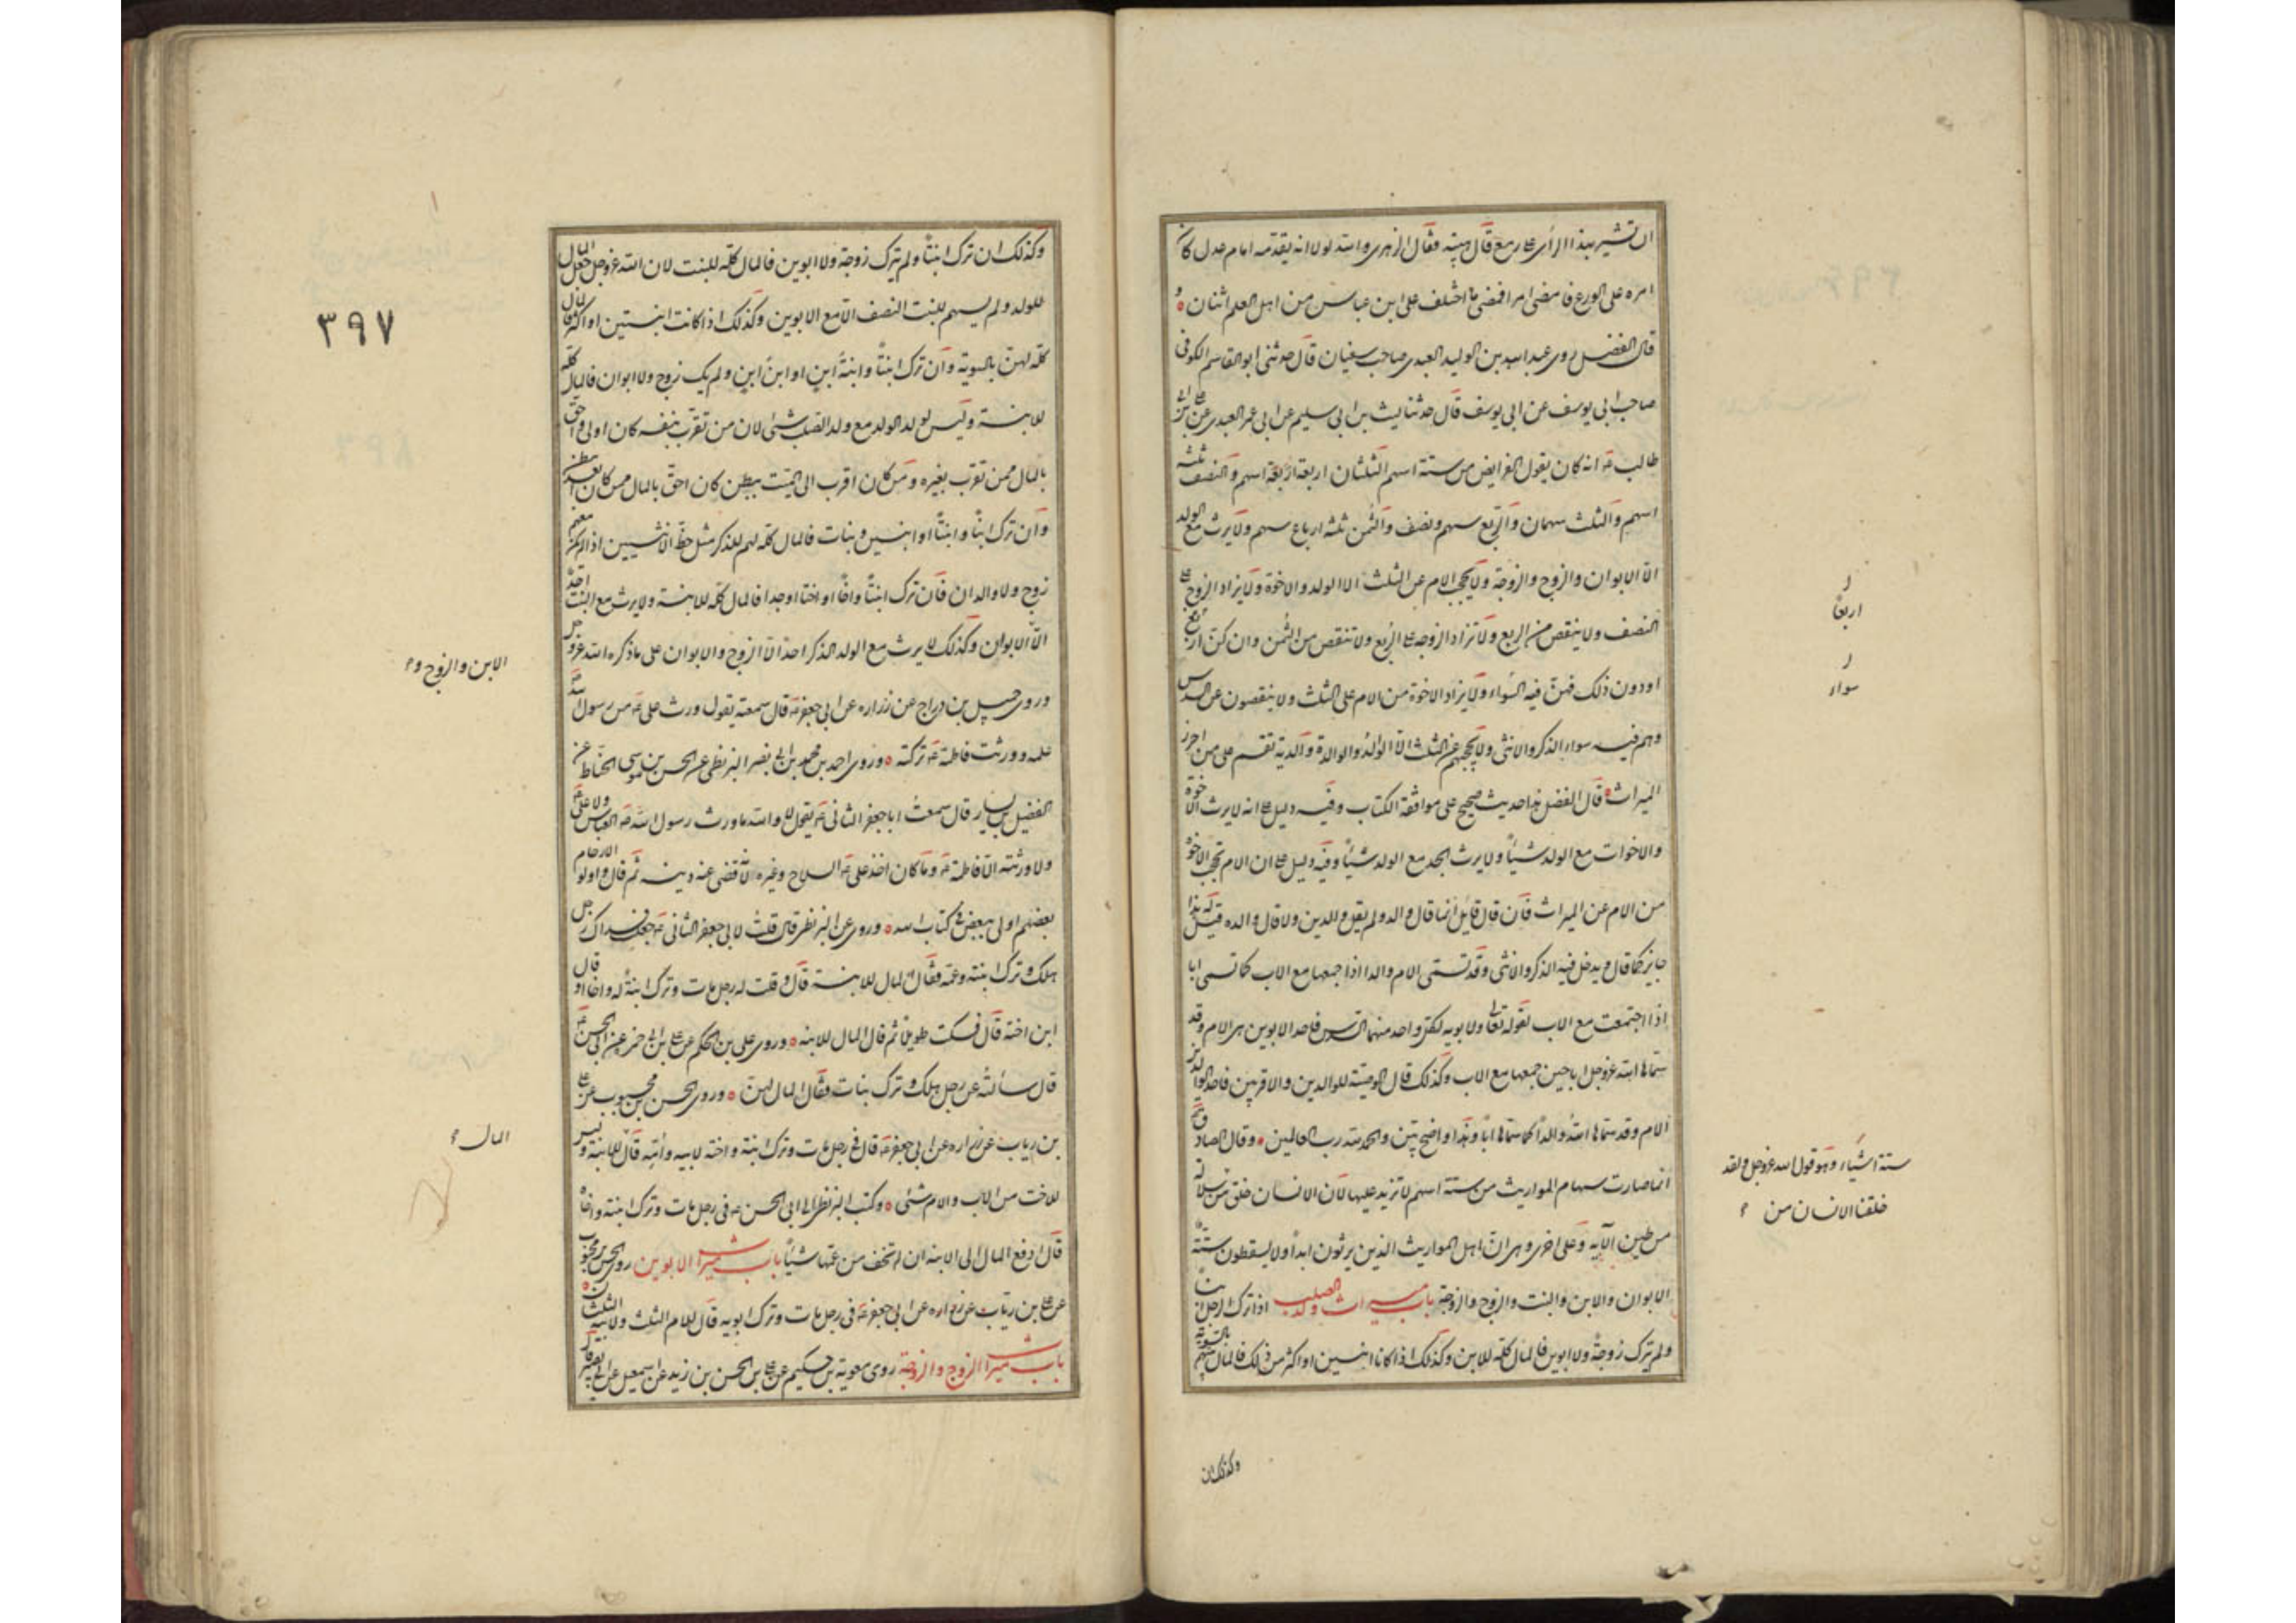 ان تشير بهذا الرأى على ربيع قال هبته فقال الزهرى والله لولا انه يقدمه امام عدل كان
امره على الورع فامضى امرا فمضى ما اختلف على ابن عباس من اهل العلم اثنان و
قال الفضل روى عبدالله بن الوليد العبدى صاحب سفيان قال حدثنى ابو القاسم الكوفى
صاحب ابى يوسف عن ابى يوسف قال حدثنا ليث بن ابى سليم عن ابى عمر العبدى عن على بن ابى
طالب ع انه كان يقول الفرايض من ستة اسهم الثلثان اربعة اسهم والنصف ثلثة
اسهم والثلث سهمان والربع سهم ونصف والثمن ثلثة ارباع سهم ولا يرث مع الولد
الا الابوان والزوج والزوجة ولا يحجب الام عن الثلث الا الولد والاخوة ولا يزاد الزوج على
النصف ولا ينقص من الربع ولا تزاد الزوجه على الربع ولا تنقص من الثمن وان كن اربع
او دون ذلك فهن فيه السواء ولا يزاد الاخوة من الام على الثلث ولا ينقصون عن السدس
وهم فيه سواء الذكر والانثى ولا يحجبهم عن الثلث الا الولد والوالدة والدية تقسم على من احرز
الميراث قال الفضل هذا حديث صحيح على موافقة الكتاب وفيه دليل على انه لا يرث الاخوة
والاخوات مع الولد شيئا ولا يرث الجد مع الولد شيئا وفيه دليل على ان الام تحجب الاخوة
من الام عن الميراث فان قال قائل انما قال والد ولم يقل والدين ولا قال والده قيل له هذا
جايز كما قال ويدخل فيه الذكر والانثى وقد تسمى الام والدا اذا جمعها مع الاب كما تسمى ابا
اذا اجتمعت مع الاب لقوله تعالى ولابويه لكل واحد منهما السدس فاحد الابوين هى الام وقد
سماها الله عز وجل ابا حين جمعها مع الاب وكذلك قال الوصية للوالدين والاقربين فاحد الوالدين
الام وقد سماها الله والدا كما سماها ابا وهذا واضح بين والحمد لله رب العالمين وقال الصادق ع
انما صارت سهام المواريث من ستة اسهم لا تزيد عليها لان الانسان خلق من سلالة
من طين الآيه وعلى اخرى وهى ان اهل المواريث الذين يرثون ابدا ولا يسقطون ستة
الابوان والابن والبنت والزوج والزوجة باب ميراث ولد الصلب اذا ترك الرجل ابنا
ولم ترك زوجة ولا ابوين فالمال كله للابن وكذلك اذا كانا ابنين او اكثر من ذلك فالمال بينهم بالسوية
وكذلك ان
ر
اربعا
ر
سواء
ستة اشياء وهو قول الله عز وجل ولقد
خلقنا الانسان من
وكذلك ان ترك ابنتا ولم يترك زوجة ولا ابوين فالمال كله للبنت لان الله عز وجل جعل المال
للولد ولم يسهم للبنت النصف الا مع الابوين وكذلك اذا كانت ابنتين او اكثر فالمال
كله لهن بالسوية وان ترك ابنتا وابنة ابن او ابن ابن ولم يك زوج ولا ابوان فالمال كله
للابنة وليس لولد الولد مع ولد الصلب شئ لان من تقرب بنفسه كان اولى واحق
بالمال ممن تقرب بغيره ومن كان اقرب الى الميت ببطن كان احق بالمال ممن كان ابعد ببطن
وان ترك ابنا وابنتا او ابنين وبنات فالمال كله لهم للذكر مثل حظ الانثيين اذا لم يكن معهم
زوج ولا والدان فان ترك ابنتا واخا او اختا او جدا فالمال كله للابنة ولا يرث مع البنت احد
الا الابوان وكذلك لا يرث مع الولد الذكر احد الا الزوج والابوان على ما ذكره الله عز وجل
وروى جميل بن دراج عن زراره عن ابى جعفر ع قال سمعته يقول ورث على ع من رسول الله ص
علمه وورثت فاطمة ع تركته وروى احمد بن محمد بن ابى نصر البزنطى عن الحسن بن موسى الحناط عن
الفضيل بن يسار قال سمعت ابا جعفر الثانى ع يقول لا والله ما ورث رسول الله ص العباس ولا على ع
ولا ورثته الا فاطمة ع وما كان اخذ على ع السلاح وغيره الا لانه قضى عنه دينه ثم قال واولوا الارحام
بعضهم اولى ببعض فى كتاب الله وروى عن البزنطى قال قلت لابى جعفر الثانى ع جعلت فداك رجل
هلك وترك ابنة وعمه فقال المال للابنة قال وقلت له رجل مات وترك ابنة له واخا او قال
ابن اخته قال فسكت طويلا ثم قال المال للابنه وروى على بن الحكم عن على بن ابى حمزة عن ابى الحسن ع
قال سألته عن رجل هلك وترك بنات فقال المال لهن وروى الحسن بن محبوب عن على
بن رياب عن زراره عن ابى جعفر ع قال فى رجل مات وترك ابنة واخته لابيه وامه قال للابنة وليس
للاخت من الاب والام شئ وكتب البزنطى الى ابى الحسن ع فى رجل مات وترك ابنة واخا
قال ادفع المال الى الابنه ان لم تخف من عمها شيئا باب ميراث الابوين روى الحسن بن محبوب
عن على بن رياب عن زراره عن ابى جعفر ع فى رجل مات وترك ابويه قال للام الثلث ولابيه الثلثان
باب ميراث الزوج والزوجة روى معوية بن حكيم عن على بن الحسن بن زيد عن اسمعيل عن ابى بصير قال
٣٩٧
الابن والزوج و
المال